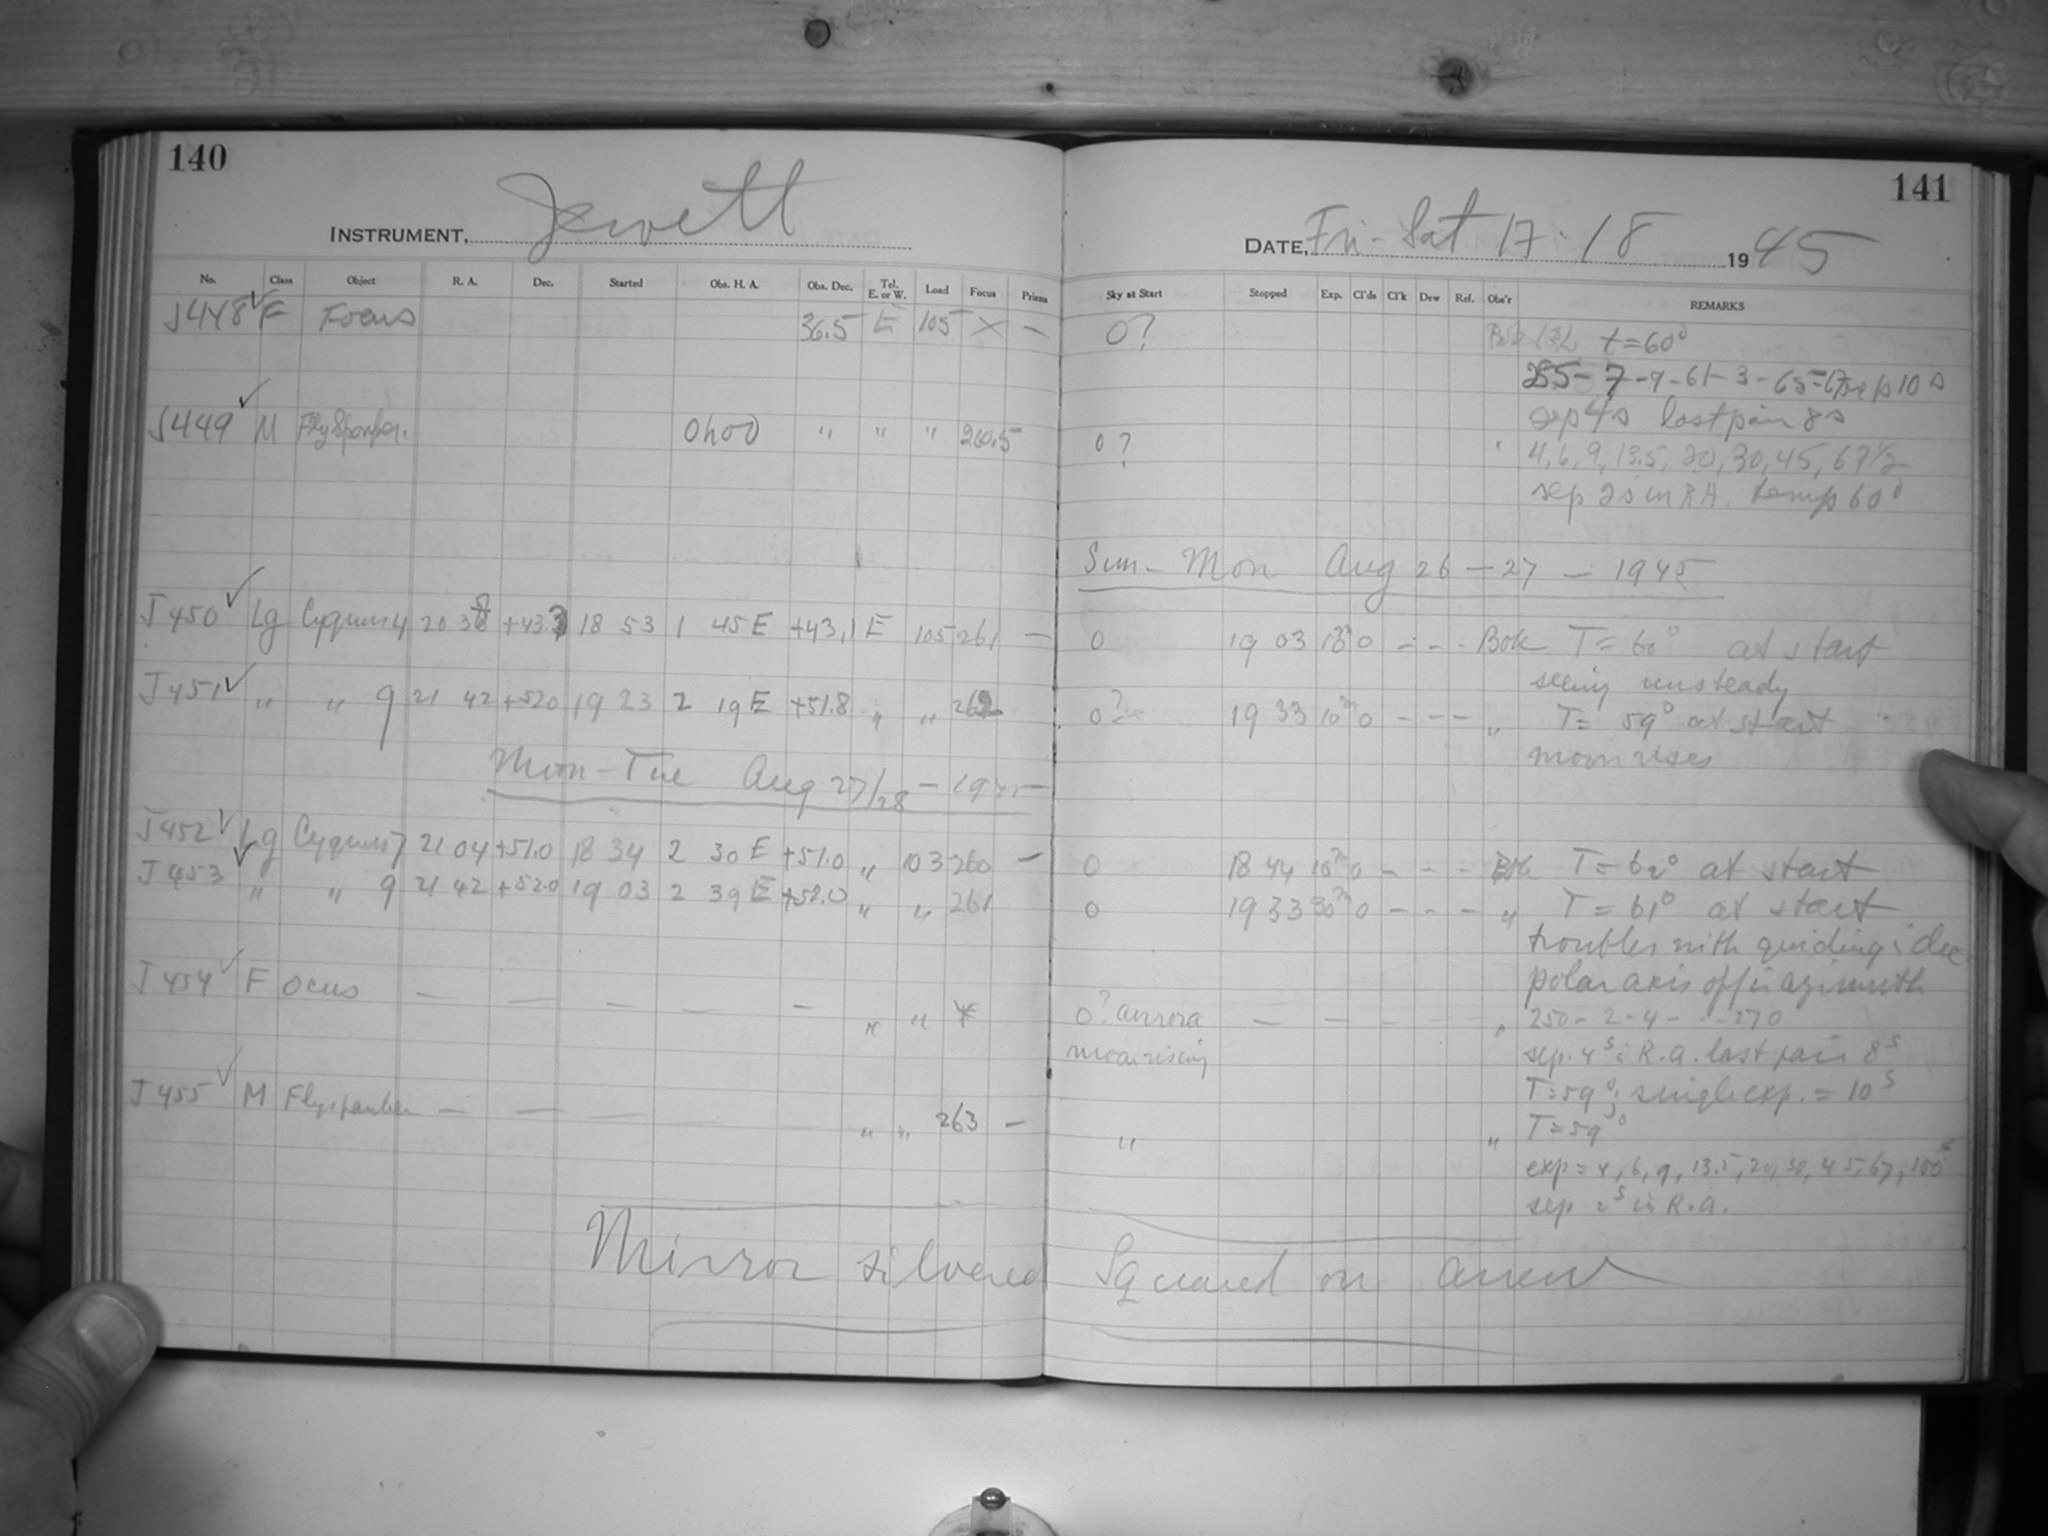 140
INSTRUMENT, Jewett
No. Class Object R. A. Dec. Started Obs. H. A. Obs. Dec. Tel. E. or W. Load Focus Prisms
J448 ✓ F Focus 36.5 E 105 X —
J449 ✓ M 0h00 " " " 260.5
J450 ✓ Lg Cygnus 4 20 38 +43.3 18 53 1 45 E +43.1 E 105 261 —
J451 ✓ " " 9 21 42 +52.0 19 23 2 19 E +51.8 " " 262
Mon-Tue Aug 27/28 - 1945
J452 ✓ Lg Cygnus 7 21 04 +51.0 18 34 2 30 E +51.0 " 103 260 —
J453 ✓ " " 9 21 42 +52.0 19 03 2 39 E +52.0 " " 261
J454 ✓ Focus — — — — — " " X
J455 ✓ M Flyspanker — — — " " 263 —
Mirror silvered Squared on anew
141
DATE, Fri-Sat 17-18 1945
Sky at Start Stopped Exp. Cl'ds Cl'k Dew Ref. Obs'r REMARKS
0? t=60°
255-7-9-61-3-65-67 exp 10 s
sep 4s last pair 8s
0? " 4, 6, 9, 13.5, 20, 30, 45, 67½
sep 2s in RA. temp 60°
Sun-Mon Aug 26-27 - 1945
0 19 03 10m 0 - - - Bok T=60° at start
seeing unsteady
0? 19 33 10m 0 - - - " T=59° at start
moon rises
0 18 44 10m 0 - - - Bok T=62° at start
0 19 33 30m 0 - - - " T=61° at start
troubles with guiding i dec
polar axis off i azimuth
0? aurora — — — - - - " 250-2-4- - -270
moon rising sep. 4s i R.a. last pair 8s
T=59°, single exp. = 10s
" " T=59°
exp = 4, 6, 9, 13.5, 20, 30, 45, 67, 100s
sep 2s in R.a.